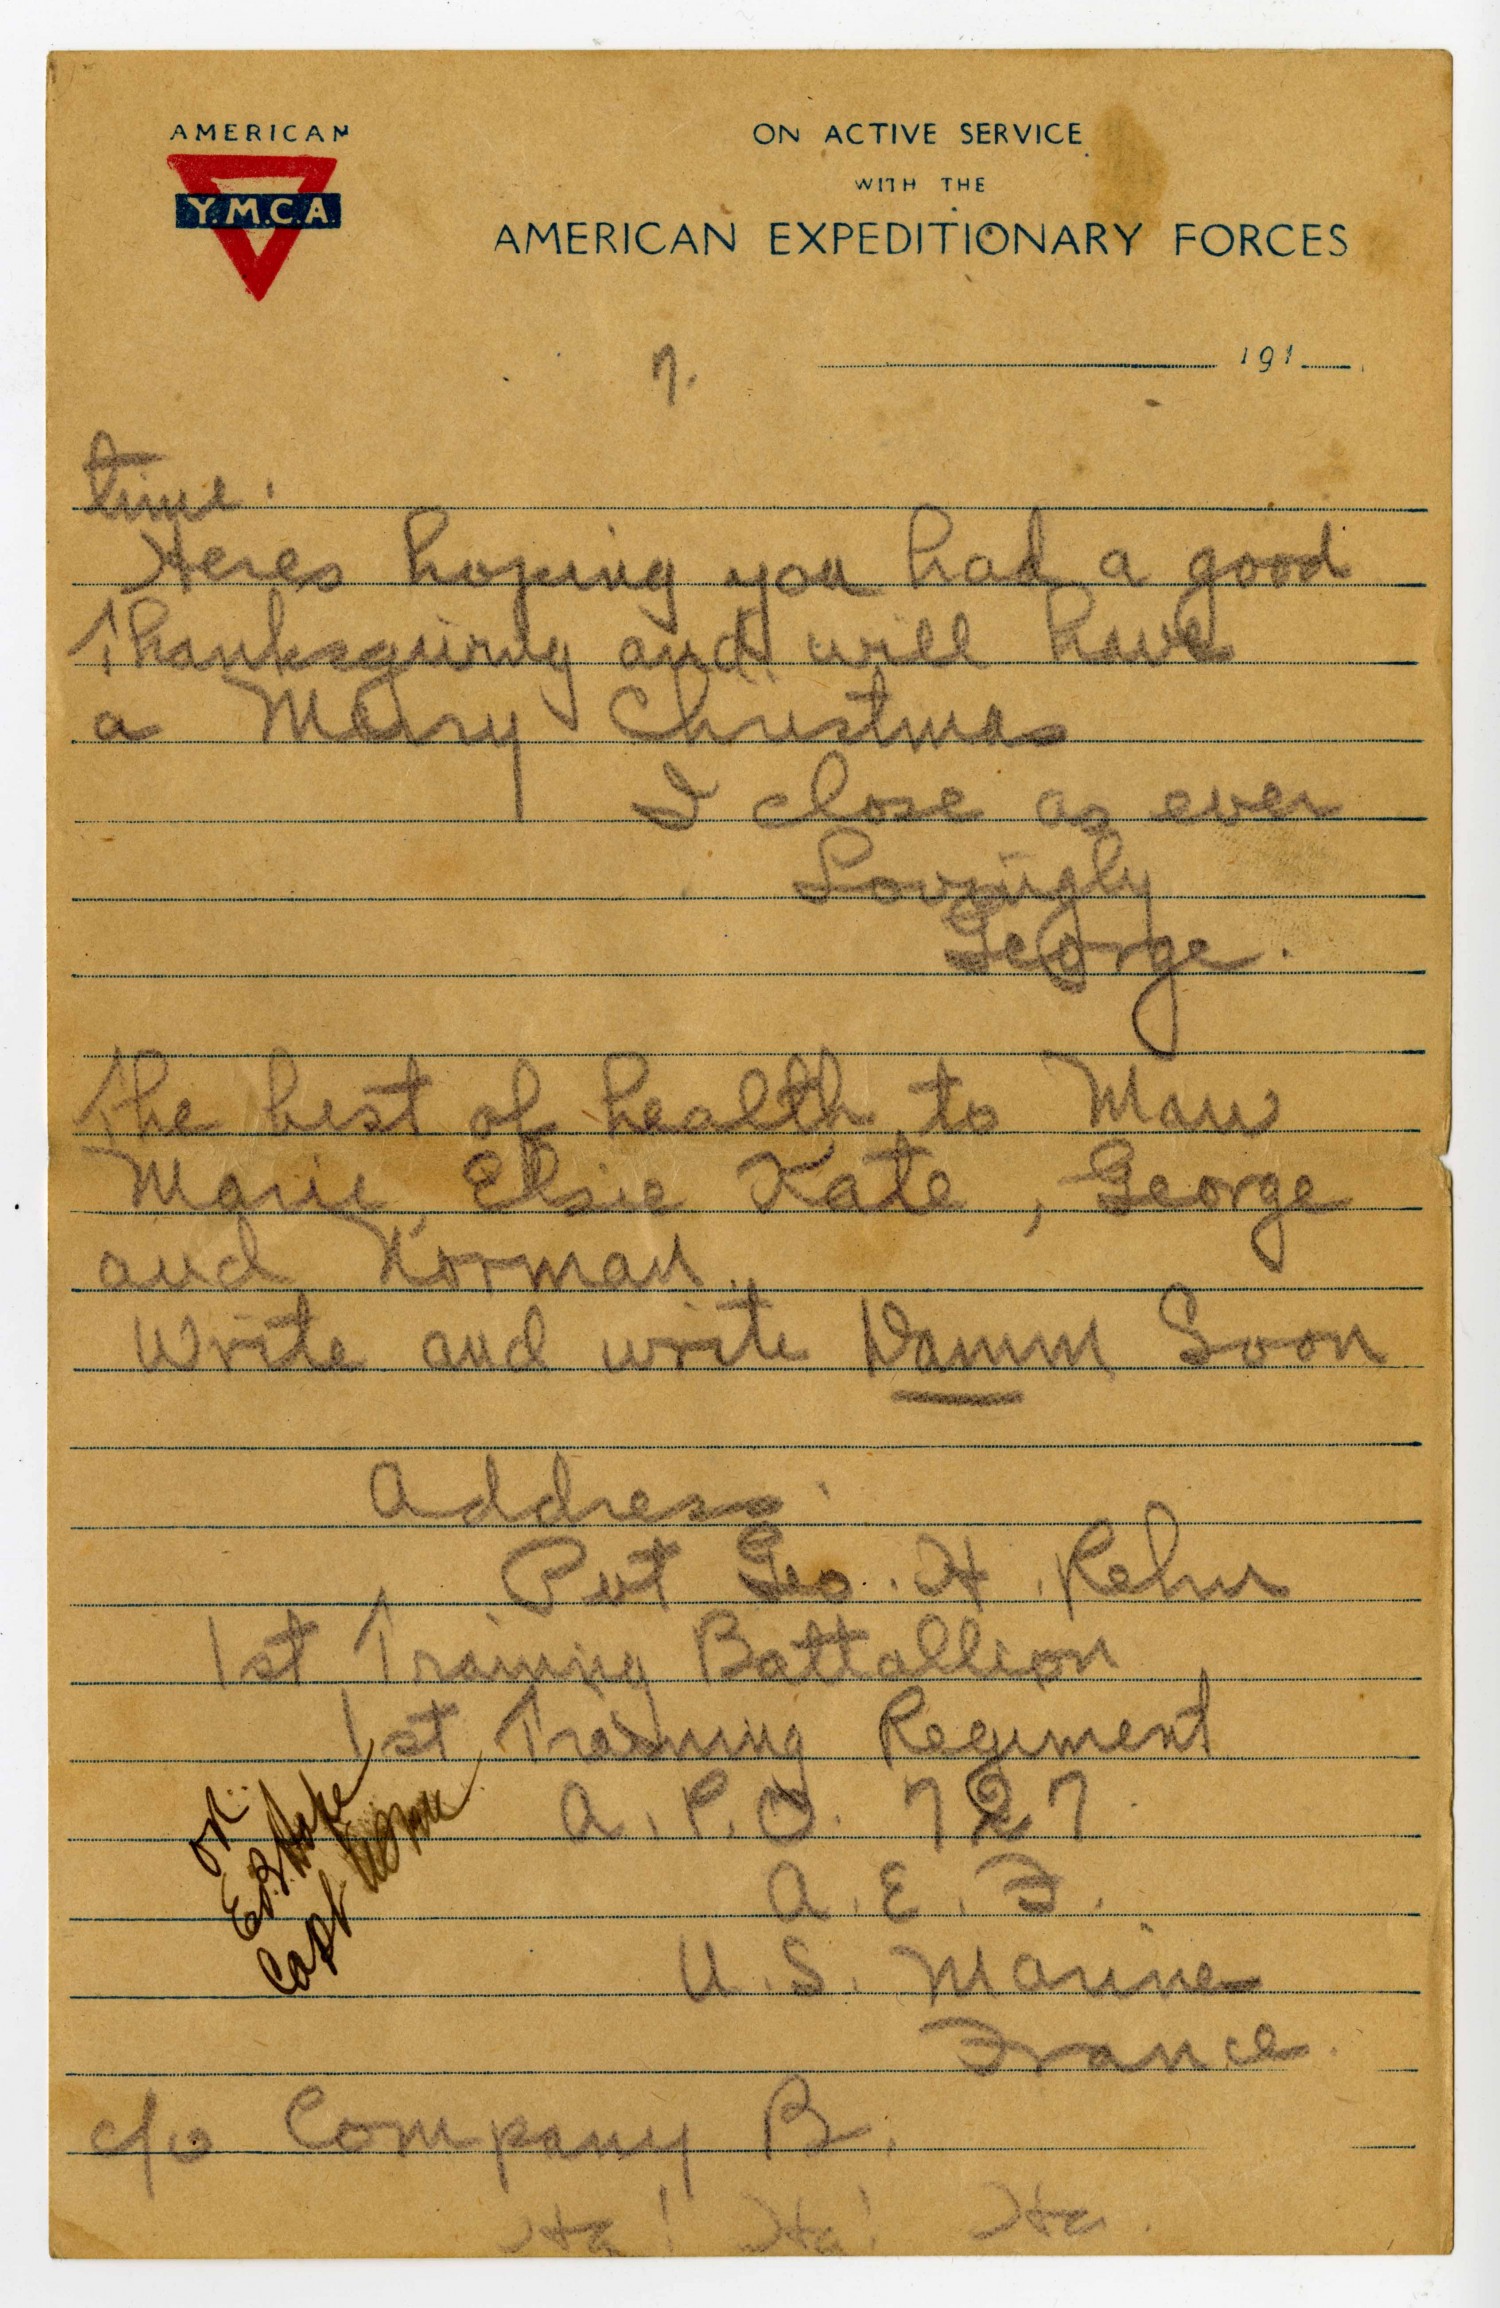 AMERICAN
Y.M.C.A.
ON ACTIVE SERVICE
WITH THE
AMERICAN EXPEDITIONARY FORCES
191
7.
time.
Heres hoping you had a good
Thanksgiving and will have
a Merry Christmas
I close as ever
Lovingly
George.
The best of health to Maw
Marie, Elsie Kate, George
and Norman.
Write and write Damm Soon
Address.
Pvt Geo. H. Rehm
1st Training Battallion
1st Training Regiment
A.P.O. 727
A.E.F.
U.S. Marines
France.
c/o Company B.
Ha! Ha! Ha.
OK.
E.B. Hope
Capt USMC